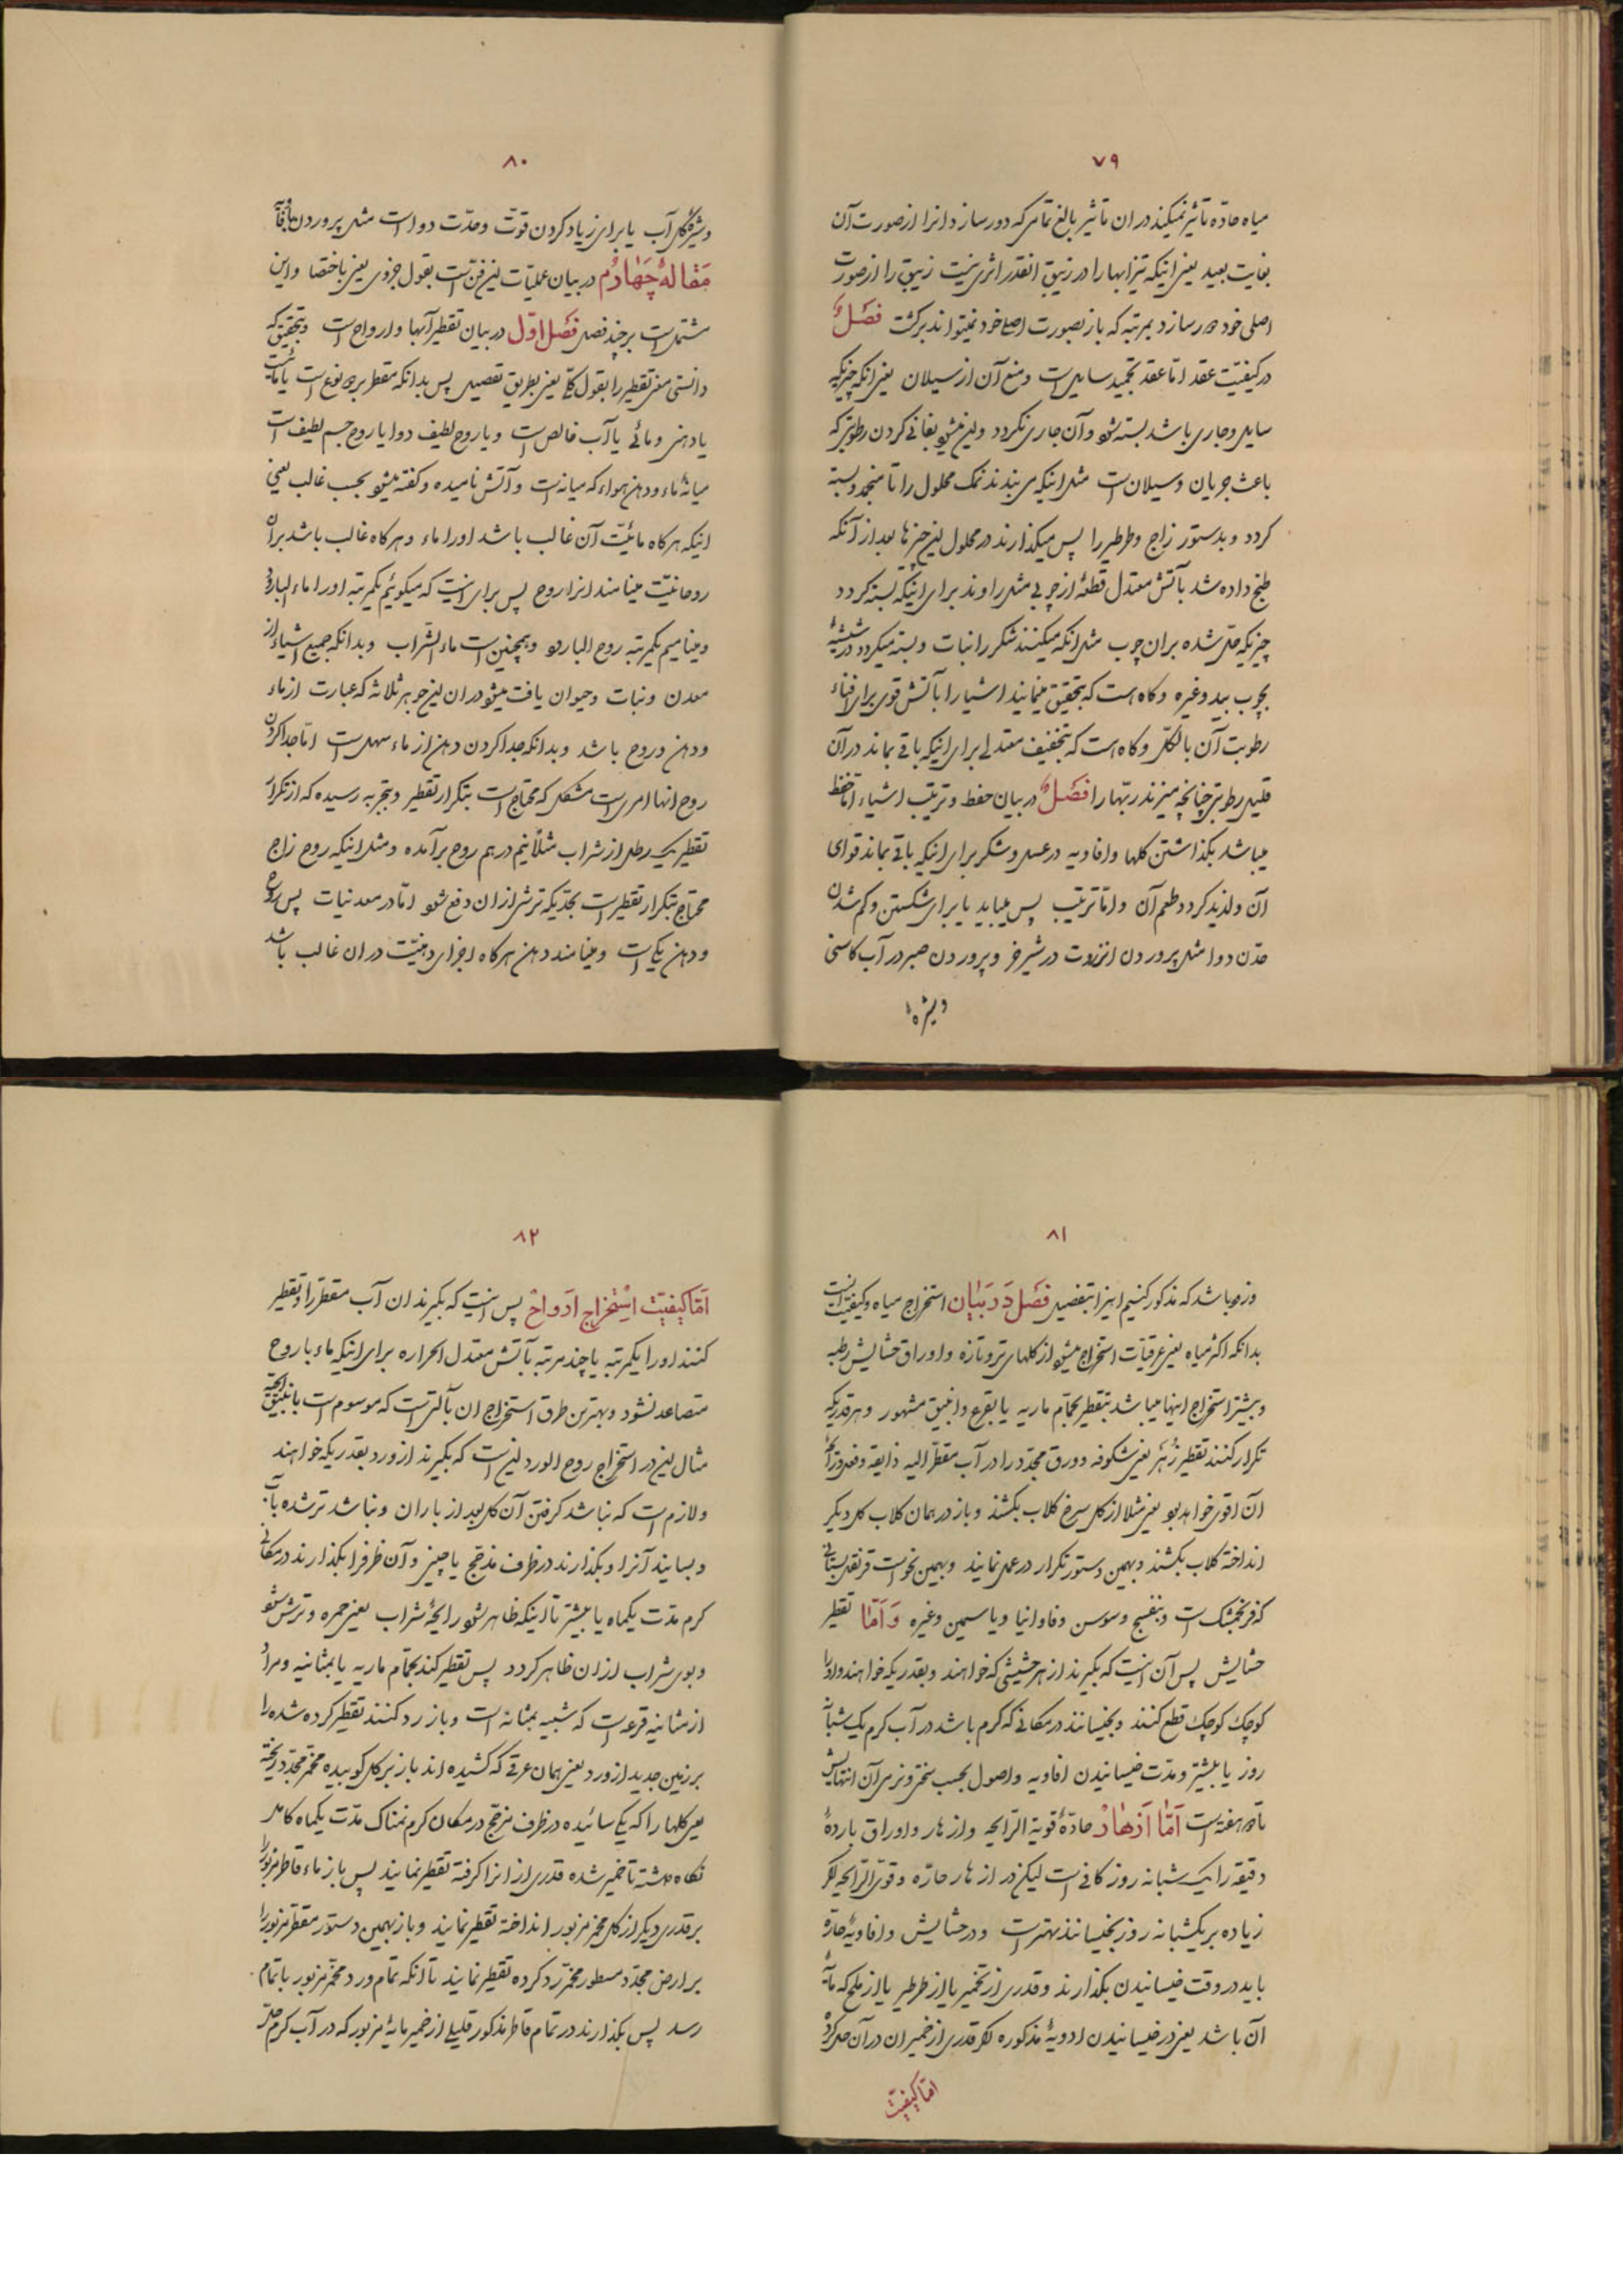 ۷۹
میاه حادّه تأثیر نمیکند در ان تأثیر بالغ تامی که دور سازد انرا از صورت آن
بغایت بعید یعنی اینکه تیزابها را در زیبق انقدر اثری نیست زیبق را از صورت
اصلی خود دور سازد بمرتبه که باز بصورت اصلی خود نمیتواند برکشت فصل
در کیفیّت عقد امّا عقد تجمید سایل است و منع آن از سیلان یعنی انکه چیزیکه
سایل و جاری باشد بسته شود و آن جاری نکردد و این میشود بفانی کردن رطوبتی که
باعث جریان و سیلان است مثل اینکه می بندند نمک محلول را تا منجمد و بسته
کردد و بدستور زاج و طرطیر را پس میکذارند در محلول این چیزها بعد از آنکه
طبخ داده شد بآتش معتدل قطعهٔ از چوبی مثل راوند برای اینکه بسته کردد
چیزیکه حل شده بران چوب مثل انکه میکنند شکر را نبات و بسته میکردد در شیشهٔ
بچوب بید و غیره و کاه است که بتحقیق مینمایند اشیا را بآتش قوی برای افناء
رطوبت آن بالکلّ و کاه است که بتخفیف معتدلی برای اینکه باقی بماند در آن
قلیل رطوبتی چنانچه میپزند ربّها را فصل در بیان حفظ و ترتیب اشیاء امّا حفظ
میباشد بکذاشتن کلها و افاویه در عسل و شکر برای اینکه باقی بماند قوای
آن و لذیذ کردد طعم آن و امّا ترتیب پس میباید یا برای شکستن و کم شدن
حدّت دوا مثل پروردن انزروت در شیر خر و پروردن صبر در آب کاسنی
و شیرهٔ
۸۰
و شیرهٔ کل آب یا برای زیاد کردن قوّت و حدّت دوا است مثل پروردن
مقالهٔ چهارم در بیان عملیّات این فن است بقول جزوی یعنی باختصار و این
مشتمل است بر چند فصل فصل اوّل در بیان تقطیر آبها و ارواح است و بتحقیق که
دانستی معنی تقطیر را بقول کلّی یعنی بطریق تفصیل پس بدانکه مقطر بر دو نوع است یا مائیت
یا دهنی و مائی یا آب خالص است و یا روح لطیف دوا یا روح جسم لطیف است
میانهٔ ماء و دهن هواء که میانه است و آتش نامیده و کفته میشود بحسب غالب یعنی
اینکه هرکاه مائیّت آن غالب باشد اورا ماء و هرکاه غالب باشد بر آن
روحانیّت مینامند انرا روح پس برای اینست که میکوئیم یکمرتبه اورا ماء البارود
و مینامیم یکمرتبه روح البارود و همچنین است ماء الشراب و بدانکه جمیع اشیاء از
معدن و نبات و حیوان یافت میشود در ان این جوهر ثلاثه که عبارت از ماء
و دهن و روح باشد و بدانکه جدا کردن دهن از ماء سهل است امّا جدا کردن
روح انها امری است مشکل که محتاج است بتکرار تقطیر و بتجربه رسیده که از تکرار
تقطیر یک رطل از شراب مثلاً نیم درهم روح برآمده و مثل اینکه روح زاج
محتاج بتکرار تقطیر است بحدّیکه ترشی از ان دفع شود امّا در معدنیات پس روح
و دهن یکی است و مینامند دهن هرکاه اجزای دهنیّت در ان غالب باشد
۸۱
و زود باشد که مذکور کنیم اینرا بتفصیل فصل در بیان استخراج میاه و کیفیّت
بدانکه اکثر میاه یعنی عرقیّات استخراج میشود از کلهای تر و تازه و اوراق حشایش رطبه
و بیشتر استخراج اینها میباشد بتقطیر بحمّام ماریه یا بقرع و انبیق مشهور و هرقدریکه
تکرار کنند تقطیر زهر یعنی شکوفه و ورق مجدّد را در آب مقطر الیه ذایقه و فعل و رایحهٔ
آن اقوی خواهد بود یعنی مثلا از کل سرخ کلاب بکشند و باز در همان کلاب کل دیکر
انداخته کلاب بکشند و بهمین دستور تکرار در عمل نمایند و بهمین نحو است قرنفل بستانی
که فرنجمشک است و بنفسج و سوسن و فاوانیا و یاسمین و غیره و امّا تقطیر
حشایش پس آن اینست که بکیرند از هر حشیشی که خواهند و بقدریکه خواهند و او را
کوچک کوچک قطع کنند و بخیسانند در مکانی که کرم باشد در آب کرم یک شبانه
روز یا بیشتر و مدّت خیسانیدن افاویه و اصول بحسب سختی و نرمی آن انتهایش
تا دو هفته است امّا ازهار حادّهٔ قویة الرایحه و ازهار و اوراق باردهٔ
دقیقه را یک شبانه روز کافی است لیکن در ازهار حارّه و قوی الرایحه اکر
زیاده بر یکشبانه روز بخیسانند بهتر است و در حشایش و افاویهٔ حارّه
باید در وقت خیسانیدن بکذارند و قدری از تخمیر یا از طرطیر یا از ملح که مایهٔ
آن باشد یعنی در خیسانیدن ادویهٔ مذکوره اکر قدری از خمیر ان در آن حل کرده
امّا کیفیّت
۸۲
امّا کیفیّت استخراج ارواح پس اینست که بکیرند ان آب مقطر را و تقطیر
کنند اورا یکمرتبه یا چند مرتبه بآتش معتدل الحراره برای اینکه ماء با روح
متصاعد نشود و بهترین طرق استخراج ان بآلتی است که موسوم است بانبیق
مثال این در استخراج روح الورد این است که بکیرند از ورد بقدریکه خواهند
و لازم است که نباشد کرفتن آن کل بعد از باران و نباشد تر شده بآب
و بسایند آنرا و بکذارند در ظرف مزجّج یا چینی و آن ظرف را بکذارند در مکانی
کرم مدّت یکماه یا بیشتر تا اینکه ظاهر شود رایحهٔ شراب یعنی خمره و ترش شود
و بوی شراب از ان ظاهر کردد پس تقطیر کند بحمّام ماریه یا بمثانیه و مراد
از مثانیه قرعه است که شبیه بمثانه است و باز رد کنند تقطیر کرده شده را
بر زمین جدید از ورد یعنی همان عرقی که کشیده اند باز بر کل کوبیده مخمّر مجدّد ریخته
یعنی کلها را که یکی سائیده در ظرف مزجّج در مکان کرم نمناک مدّت یکماه کامل
نکاه داشته تا خمیر شده قدری از انرا کرفته تقطیر نمایند پس باز ماء قاطر مزبور را
بر قدری دیکر از کل مخمّر مزبور انداخته تقطیر نمایند و باز بهمین دستور مقطر مزبور را
بر ارض مجدّد مسطور مخمّر رد کرده تقطیر نمایند تا آنکه تمام ورد مخمّر مزبور باتمام
رسد پس بکذارند در تمام قاطر مذکور قلیلی از خمیر مایهٔ مزبور که در آب کرم حل